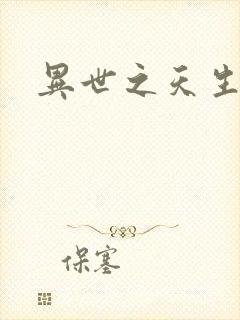 異世之天生
保塞